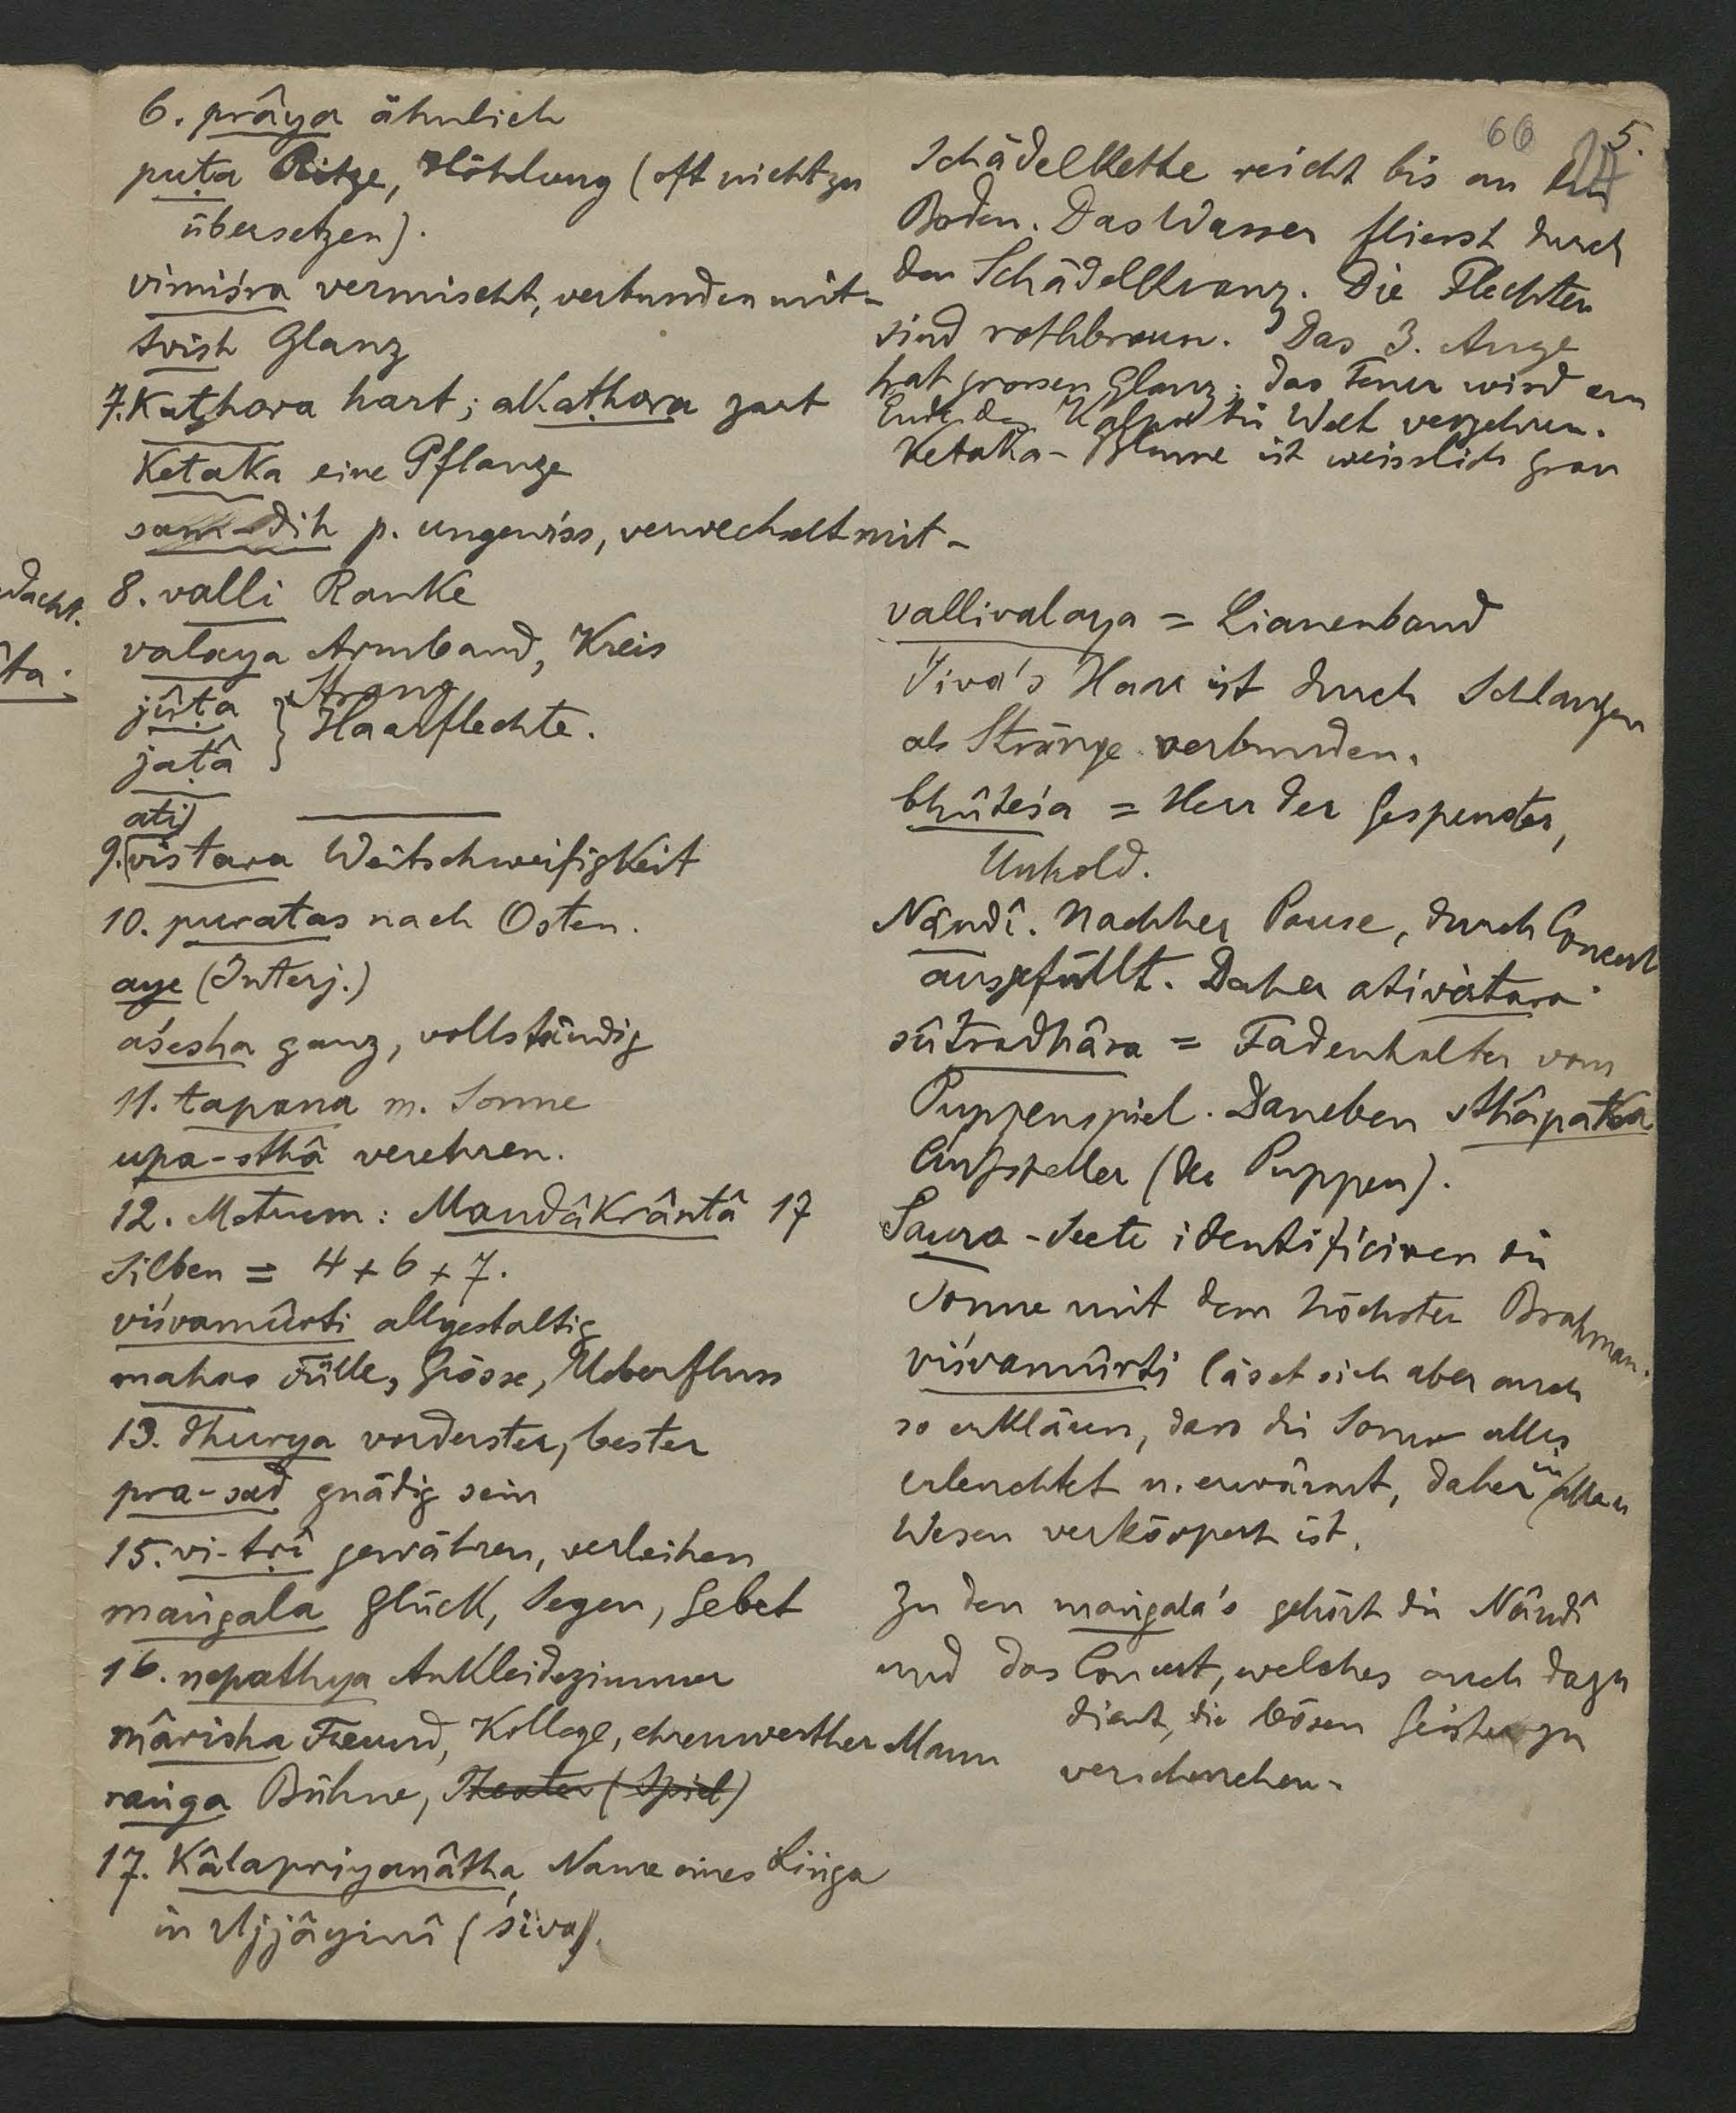 6. prâya ähnlich
puṭa Ritze, Höhlung (oft nicht zu
übersetzen).
vimiśra vermischt, verbunden mit-
tvish Glanz
7. Kaṭhora hart; akaṭhora zart
Ketaka eine Pflanze
sam-dih p. ungewiss, verwechselt mit-
8. valli Ranke
valaya Armband, Kreis
Strang
jûṭa
jaṭâ } Haarflechte.
ati
9. vistara Weitschweifigkeit
10. puratas nach Osten.
aye (Interj.)
aśesha ganz, vollständig
11. tapana m. Sonne
upa-sthâ verehren.
12. Metrum: Mandâkrântâ 17
Silben = 4 + 6 + 7.
viśvamûrti allgestaltig
mahas Fülle, Grösse, Ueberfluss
13. dhurya vorderster, bester
pra-sad gnädig sein
15. vi-tṛî gewähren, verleihen
maṅgala Glück, Segen, Gebet
16. nepathya Ankleidezimmer
mârisha Freund, Kollege, ehrenwerther Mann
raṅga Bühne, Theater (Spiel)
17. Kâlapriyanâtha, Name eines Liṅga
in Ujjâyinî (Śiva).
66 5.
Schädelkette reicht bis an den
Boden. Das Wasser fliesst durch
den Schädelkranz. Die Flechten
sind rothbraun. Das 3. Auge
hat grossen Glanz; das Feuer wird am
Ende des Kalpa die Welt verzehren.
Ketaka-Blume ist weisslich grau
vallivalaya = Lianenband
Śiva's Haar ist durch Schlangen
als Stränge verbunden.
bhûteśa = Herr der Gespenster,
Unhold.
Nândî. Nachher Pause, durch Concert
ausgefüllt. Daher ativistara
sûtradhâra = Fadenhalter vom
Puppenspiel. Daneben sthâpaka
Aufsteller (der Puppen).
Saura-Secte identificiren die
Sonne mit dem höchsten Brahman.
viśvamûrti lässt sich aber auch
so erklären, dass die Sonne alles
erleuchtet u. erwärmt, daher in allen
Wesen verkörpert ist.
Zu den maṅgala's gehört die Nândî
und das Concert, welches auch dazu
dient, die bösen Geister zu
verscheuchen.
dacht.
ta.